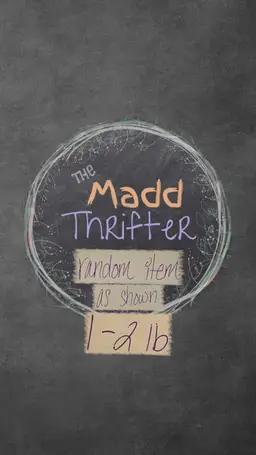 THE
Madd
Thrifter
random item
as shown
1-2 lb